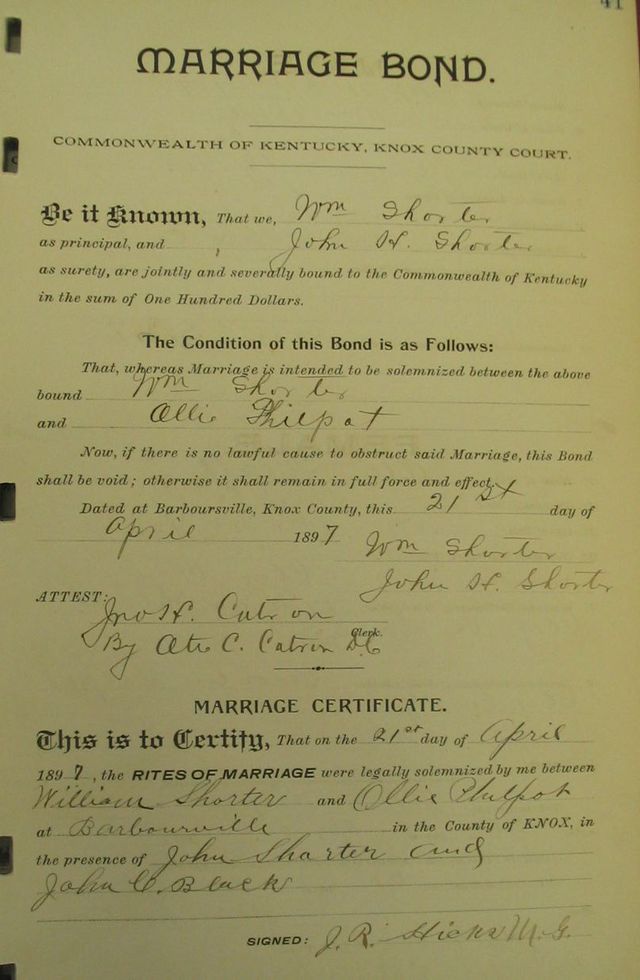 41
MARRIAGE BOND.
COMMONWEALTH OF KENTUCKY, KNOX COUNTY COURT.
Be it Known, That we, Wm Shorter
as principal, and John H. Shorter
as surety, are jointly and severally bound to the Commonwealth of Kentucky
in the sum of One Hundred Dollars.
The Condition of this Bond is as Follows:
That, whereas Marriage is intended to be solemnized between the above
bound Wm Shorter
and Ollie Philpot
Now, if there is no lawful cause to obstruct said Marriage, this Bond
shall be void; otherwise it shall remain in full force and effect.
Dated at Barboursville, Knox County, this 21st day of
April 1897
Wm Shorter
John H. Shorter
ATTEST:
Jno H. Catron
Clerk.
By C. Catron D.C
MARRIAGE CERTIFICATE.
This is to Certify, That on the 21st day of April
1897, the RITES OF MARRIAGE were legally solemnized by me between
William Shorter and Ollie Philpot
at Barbourville in the County of KNOX, in
the presence of John Shorter and
John C. Black
SIGNED: J. R. Hicks M.G.